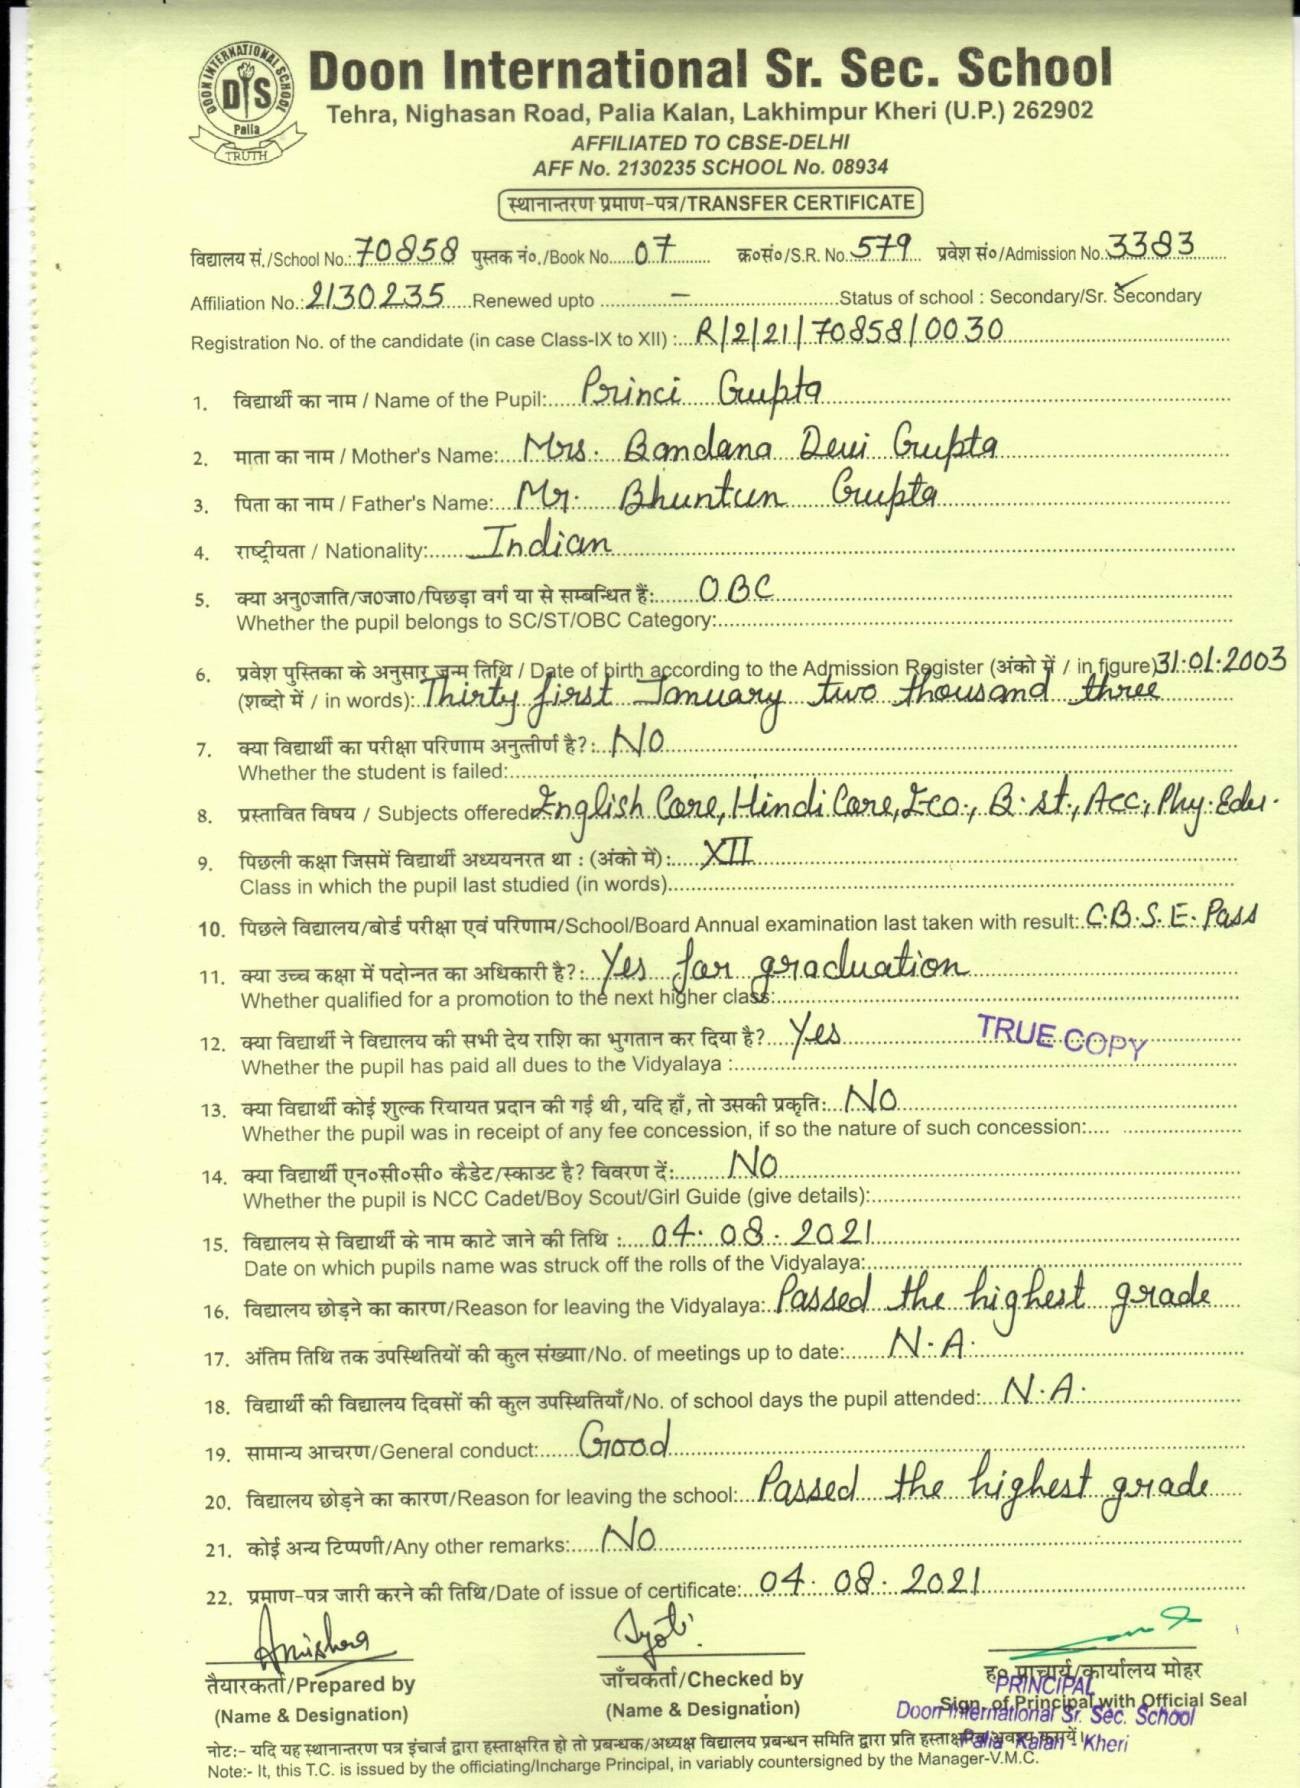 DOON INTERNATIONAL SCHOOL
DIS
Palia
TRUTH
Doon International Sr. Sec. School
Tehra, Nighasan Road, Palia Kalan, Lakhimpur Kheri (U.P.) 262902
AFFILIATED TO CBSE-DELHI
AFF No. 2130235 SCHOOL No. 08934
स्थानान्तरण प्रमाण-पत्र/TRANSFER CERTIFICATE
विद्यालय सं./School No.: 70858 पुस्तक नं०./Book No. 07 क्र०सं०/S.R. No. 579 प्रवेश सं०/Admission No. 3383
Affiliation No.: 2130235 Renewed upto – Status of school : Secondary/Sr. Secondary
Registration No. of the candidate (in case Class-IX to XII) : R/2/21/70858/0030
1. विद्यार्थी का नाम / Name of the Pupil: Princi Gupta
2. माता का नाम / Mother's Name: Mrs. Bandana Devi Gupta
3. पिता का नाम / Father's Name: Mr. Bhuntun Gupta
4. राष्ट्रीयता / Nationality: Indian
5. क्या अनु0जाति/ज0जा0/पिछड़ा वर्ग या से सम्बन्धित हैं: OBC
Whether the pupil belongs to SC/ST/OBC Category:
6. प्रवेश पुस्तिका के अनुसार जन्म तिथि / Date of birth according to the Admission Register (अंको में / in figure) 31.01.2003
(शब्दो में / in words): Thirty first January two thousand three
7. क्या विद्यार्थी का परीक्षा परिणाम अनुत्तीर्ण है?: No
Whether the student is failed:
8. प्रस्तावित विषय / Subjects offered English Core, Hindi Core, Eco., B.st., Acc., Phy.Edu.
9. पिछली कक्षा जिसमें विद्यार्थी अध्ययनरत था : (अंको में): XII
Class in which the pupil last studied (in words)
10. पिछले विद्यालय/बोर्ड परीक्षा एवं परिणाम/School/Board Annual examination last taken with result: C.B.S.E. Pass
11. क्या उच्च कक्षा में पदोन्नत का अधिकारी है?: Yes for graduation
Whether qualified for a promotion to the next higher class:
12. क्या विद्यार्थी ने विद्यालय की सभी देय राशि का भुगतान कर दिया है? Yes TRUE COPY
Whether the pupil has paid all dues to the Vidyalaya :
13. क्या विद्यार्थी कोई शुल्क रियायत प्रदान की गई थी, यदि हाँ, तो उसकी प्रकृति: No
Whether the pupil was in receipt of any fee concession, if so the nature of such concession:
14. क्या विद्यार्थी एन०सी०सी० कैडेट/स्काउट है? विवरण दें: No
Whether the pupil is NCC Cadet/Boy Scout/Girl Guide (give details):
15. विद्यालय से विद्यार्थी के नाम काटे जाने की तिथि : 04.08.2021
Date on which pupils name was struck off the rolls of the Vidyalaya:
16. विद्यालय छोड़ने का कारण/Reason for leaving the Vidyalaya: Passed the highest grade
17. अंतिम तिथि तक उपस्थितियों की कुल संख्याा/No. of meetings up to date: N.A.
18. विद्यार्थी की विद्यालय दिवसों की कुल उपस्थितियाँ/No. of school days the pupil attended: N.A.
19. सामान्य आचरण/General conduct: Good
20. विद्यालय छोड़ने का कारण/Reason for leaving the school: Passed the highest grade
21. कोई अन्य टिप्पणी/Any other remarks: No
22. प्रमाण-पत्र जारी करने की तिथि/Date of issue of certificate: 04.08.2021
Jyoti
तैयारकर्ता/Prepared by जाँचकर्ता/Checked by ह० प्राचार्य/कार्यालय मोहर
PRINCIPAL
(Name & Designation) (Name & Designation) Sign. of Principal with Official Seal
Doon International Sr. Sec. School
Palia Kalan - Kheri
नोट:- यदि यह स्थानान्तरण पत्र इंचार्ज द्वारा हस्ताक्षरित हो तो प्रबन्धक/अध्यक्ष विद्यालय प्रबन्धन समिति द्वारा प्रति हस्ताक्षरित अवश्य करायें।
Note:- It, this T.C. is issued by the officiating/Incharge Principal, in variably countersigned by the Manager-V.M.C.